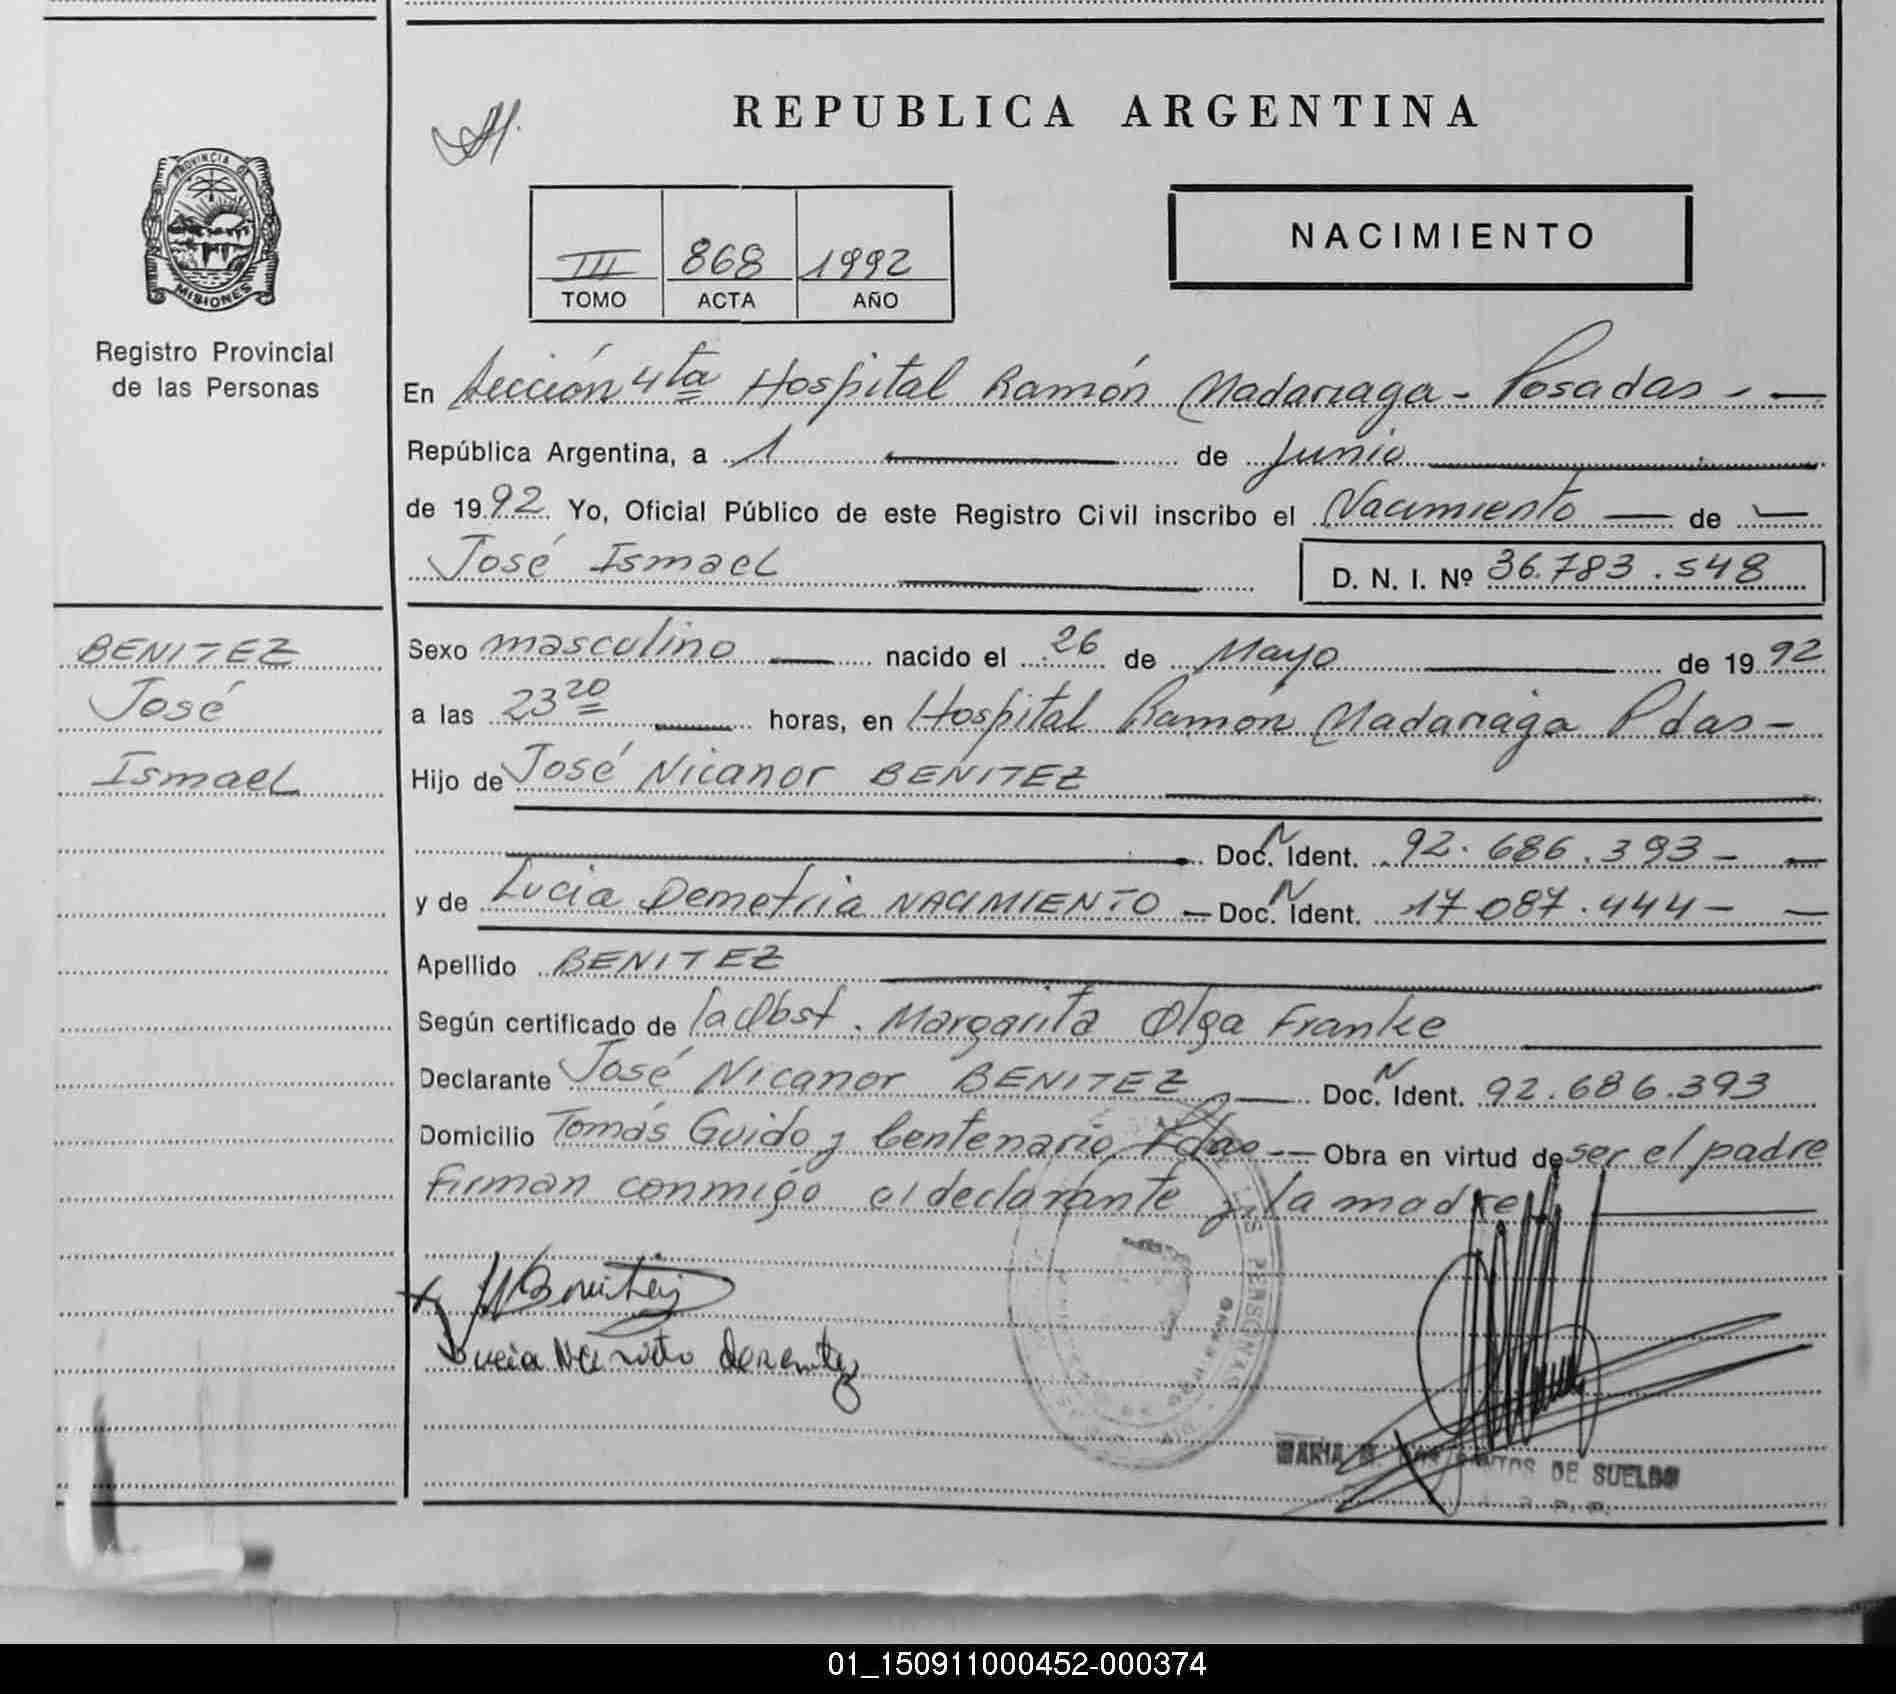 REPUBLICA ARGENTINA
PROVINCIA DE
MISIONES
Registro Provincial
de las Personas
III 868 1992
TOMO ACTA AÑO
NACIMIENTO
En Sección 4ta Hospital Ramón Madariaga - Posadas - —
República Argentina, a 1 — de Junio —
de 1992 Yo, Oficial Público de este Registro Civil inscribo el Nacimiento — de —
José Ismael — D. N. I. Nº 36.783.548
BENITEZ
José
Ismael
Sexo masculino — nacido el 26 de Mayo — de 1992
a las 23 20 — horas, en Hospital Ramón Madariaga Pdas -
Hijo de José Nicanor BENITEZ —
— Doc. N Ident. 92.686.393 - —
y de Lucia Demetria NACIMIENTO — Doc. N Ident. 17.087.444 - —
Apellido BENITEZ —
Según certificado de la Obst. Margarita Olga Franke —
Declarante José Nicanor BENITEZ — Doc. N Ident. 92.686.393
Domicilio Tomás Guido y Centenario Pdas — Obra en virtud de ser el padre
firman conmigo el declarante y la madre —
LAS PERSONAS
Lucia de Benitez
MARIA M. DOS SANTOS DE SUELDO
01_150911000452-000374